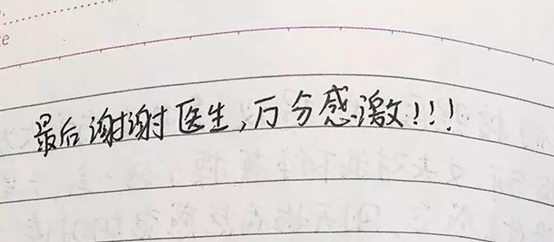 te
最后谢谢医生,万分感激!!!